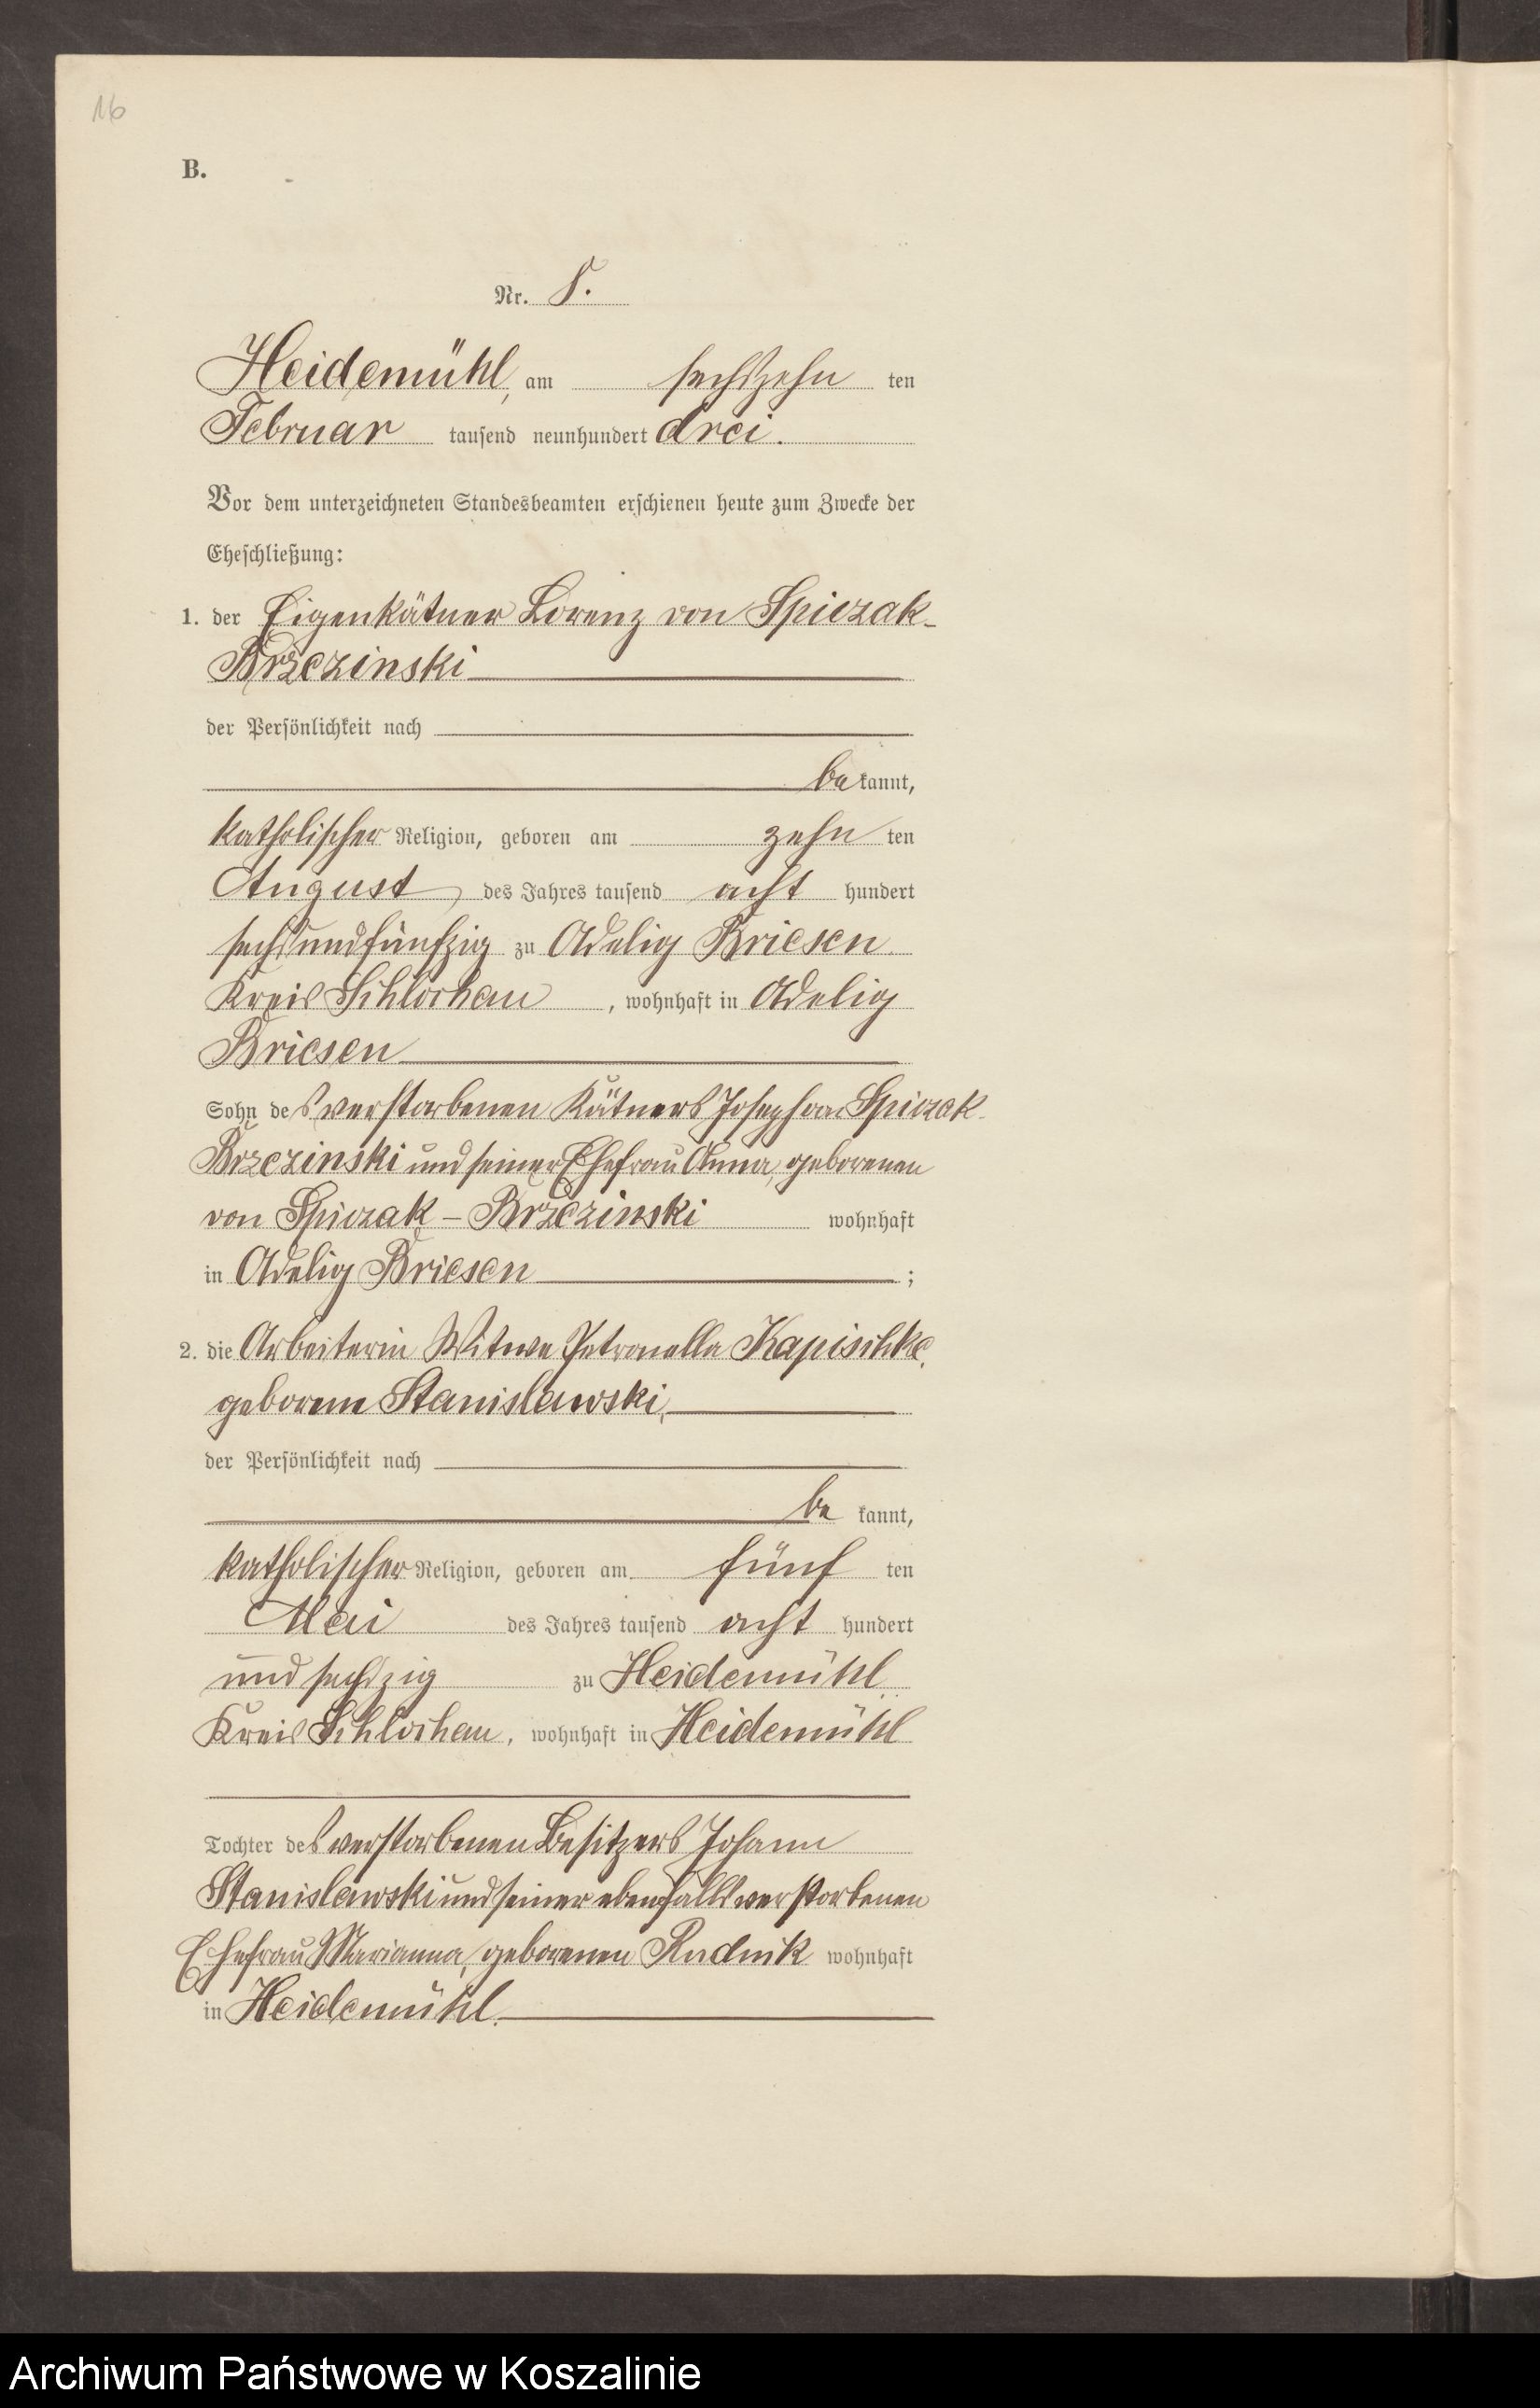 16
B.
Nr. 8.
Heidemühl, am sechszehn ten
Februar tausend neunhundert drei.
Vor dem unterzeichneten Standesbeamten erschienen heute zum Zwecke der
Eheschließung:
1. der Eigenkätner Lorenz von Spiczak-
Brzezinski
der Persönlichkeit nach
be kannt,
katholischer Religion, geboren am zehn ten
August des Jahres tausend acht hundert
sechsundfünfzig zu Adelig Briesen
Kreis Schlochau, wohnhaft in Adelig
Briesen
Sohn des verstorbenen Kätners Joseph von Spiczak-
Brzezinski und seiner Ehefrau Anna, geborenen
von Spiczak-Brzezinski wohnhaft
in Adelig Briesen;
2. die Arbeiterin Witwe Petronella Kapischke,
geborene Stanislawski,
der Persönlichkeit nach
be kannt,
katholischer Religion, geboren am fünf ten
Mai des Jahres tausend acht hundert
und sechszig zu Heidemühl
Kreis Schlochau, wohnhaft in Heidemühl
Tochter des verstorbenen Besitzers Johann
Stanislawski und seiner ebenfalls verstorbenen
Ehefrau Marianna, geborenen Rudnik wohnhaft
in Heidemühl.
Archiwum Państwowe w Koszalinie